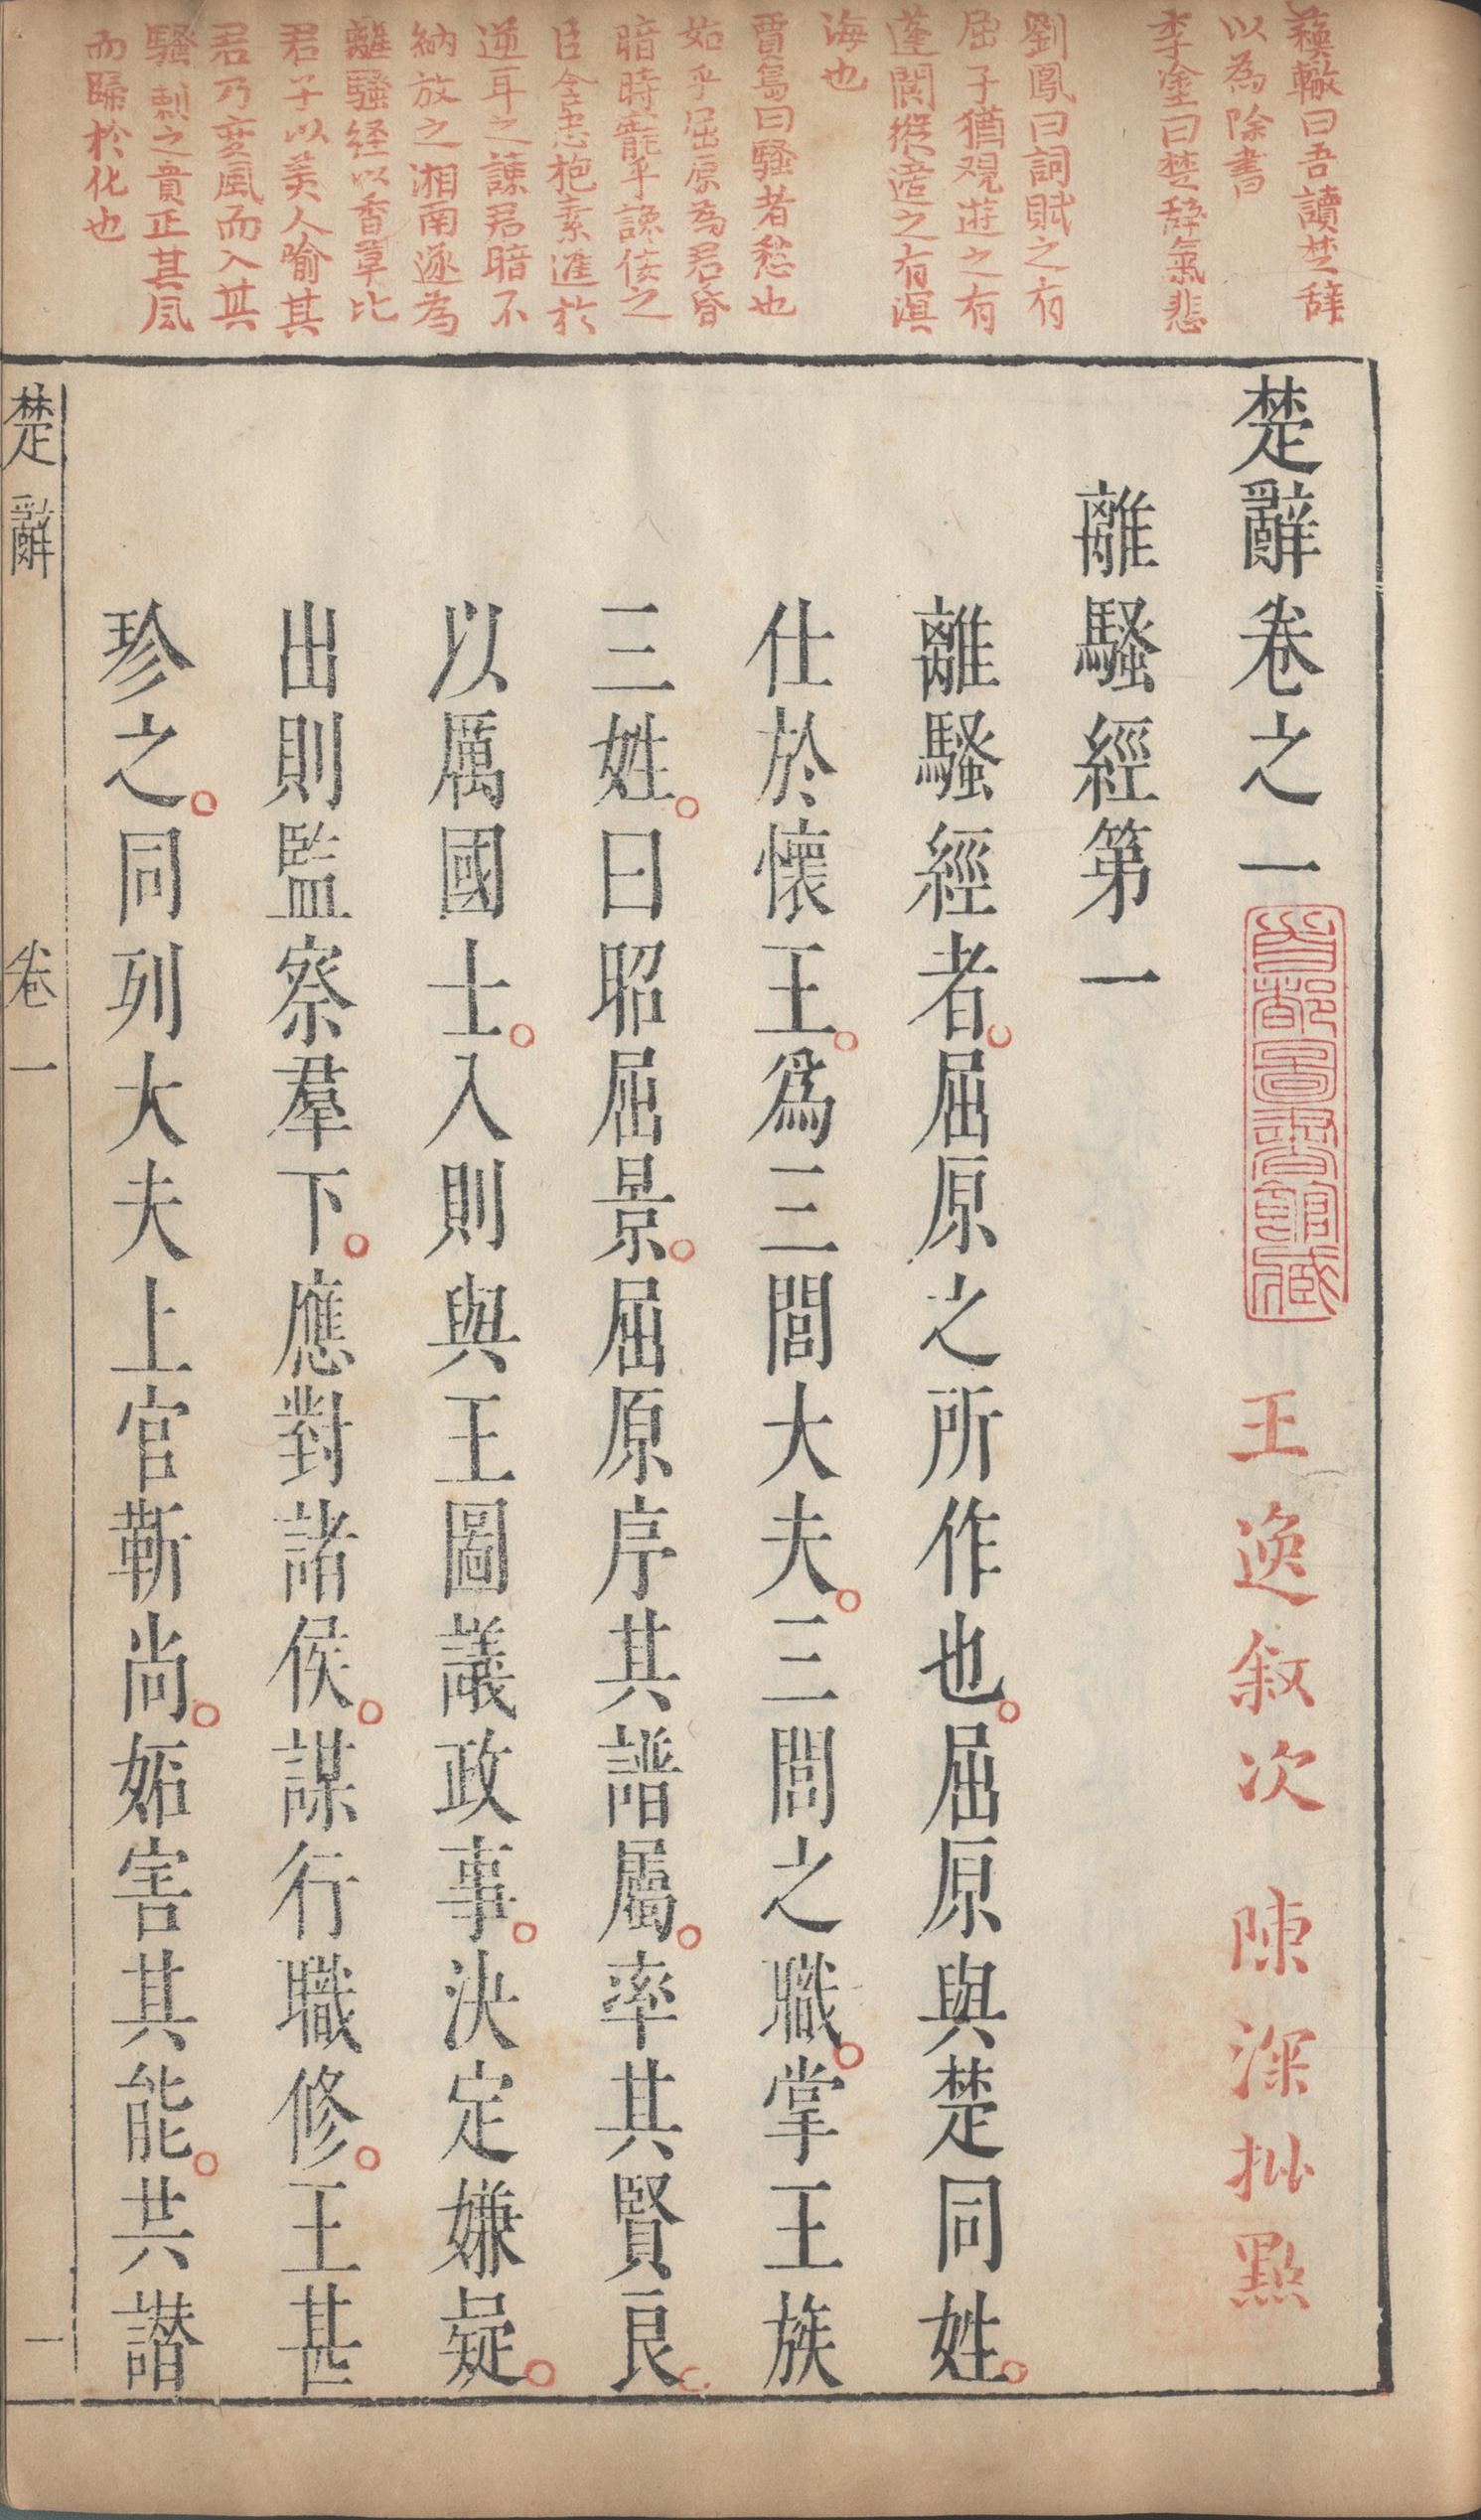 蘇轍曰吾讀楚辭
以為除書
李塗曰楚辭氣悲
劉鳳曰詞賦之有
屈子猶觀遊之有
蓬閬縱適之有溟
海也
賈島曰騷者愁也
始乎屈原為君昏
暗時寵乎讒佞之
臣含忠抱素進於
逆耳之諫君暗不
納放之湘南遂為
離騷経以香草比
君子以美人喻其
君乃变風而入其
騷刺之貴正其風
而歸於化也
楚辭卷之一
首都圖書館藏
王逸叙次
陳深批點
離騷經第一
離騷經者。屈原之所作也。屈原與楚同姓。
仕於懷王。爲三閭大夫。三閭之職。掌王族
三姓。曰昭屈景。屈原序其譜屬。率其賢良。
以厲國士。入則與王圖議政事。決定嫌疑。
出則監察羣下。應對諸侯。謀行職修。王甚
珍之。同列大夫上官靳尚。妬害其能。共譖
楚辭
卷一
一